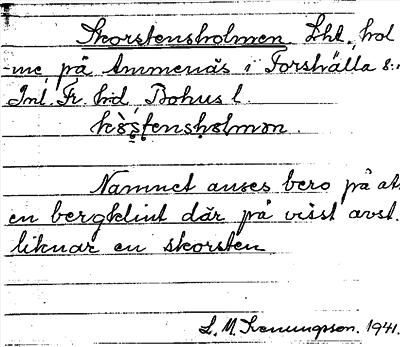 Skorstensholmen. Lht., hol
-me, på Ammenäs i Forshälla s:n
Inl. Fr. hd, Bohusl.
kòstensholmən.
Namnet anses bero på att
en bergklint där på visst avst.
liknar en skorsten
L. M. 1941.